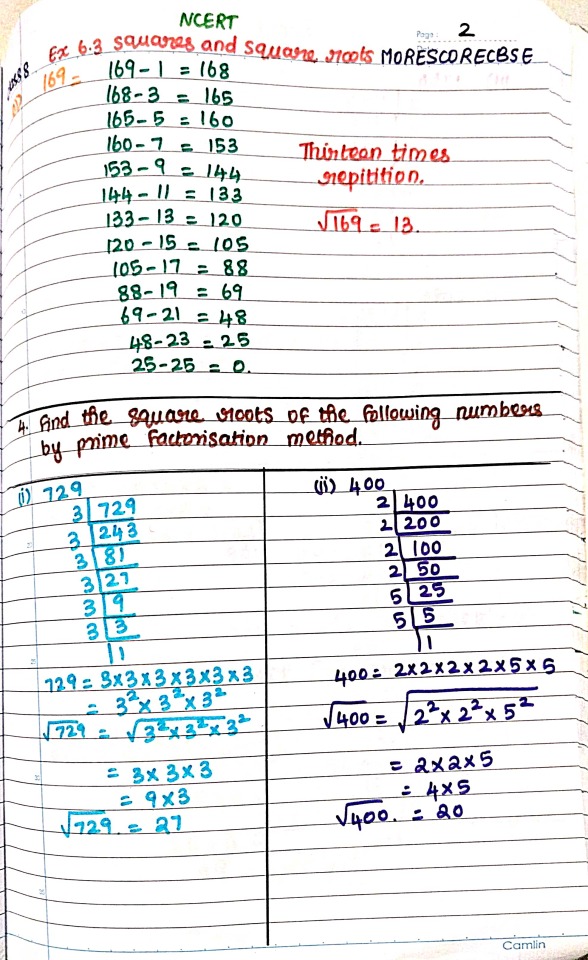 NCERT
Page: 2
Ex 6.3 squares and square roots MORESCORECBSE
169 =
169 - 1 = 168
168 - 3 = 165
165 - 5 = 160
160 - 7 = 153
153 - 9 = 144
144 - 11 = 133
133 - 13 = 120
120 - 15 = 105
105 - 17 = 88
88 - 19 = 69
69 - 21 = 48
48 - 23 = 25
25 - 25 = 0.
Thirteen times
repitition.
√169 = 13.
4. Find the square roots of the following numbers
by prime factorisation method.
(i) 729
3 | 729
3 | 243
3 | 81
3 | 27
3 | 9
3 | 3
| 1
729 = 3×3×3×3×3×3
= 3²×3²×3²
√729 = √3²×3²×3²
= 3×3×3
= 9×3
√729. = 27
(ii) 400
2 | 400
2 | 200
2 | 100
2 | 50
5 | 25
5 | 5
| 1
400 = 2×2×2×2×5×5
√400 = √2²×2²×5²
= 2×2×5
= 4×5
√400. = 20
Camlin